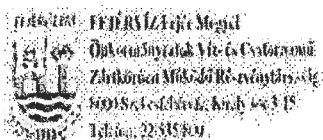 FEJÉRVÍZ Fejér Megyei
Önkormányzatok Víz- és Csatornamű
Zártkörűen Működő Részvénytársaság
8000 Székesfehérvár, Király sor 3-15
Telefon: 22/535